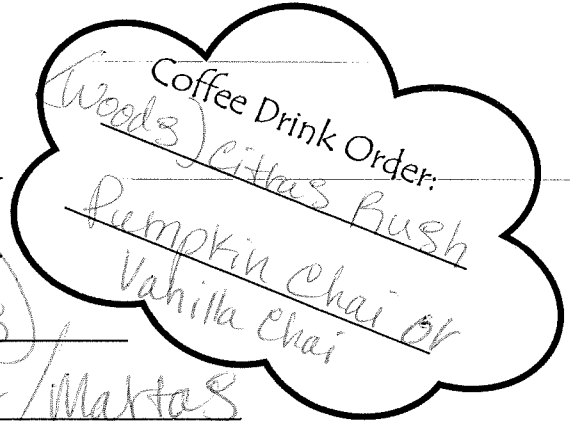 Coffee Drink Order:
(Woods) Citrus Rush
Pumpkin Chai or
Vanilla Chai
/Martas